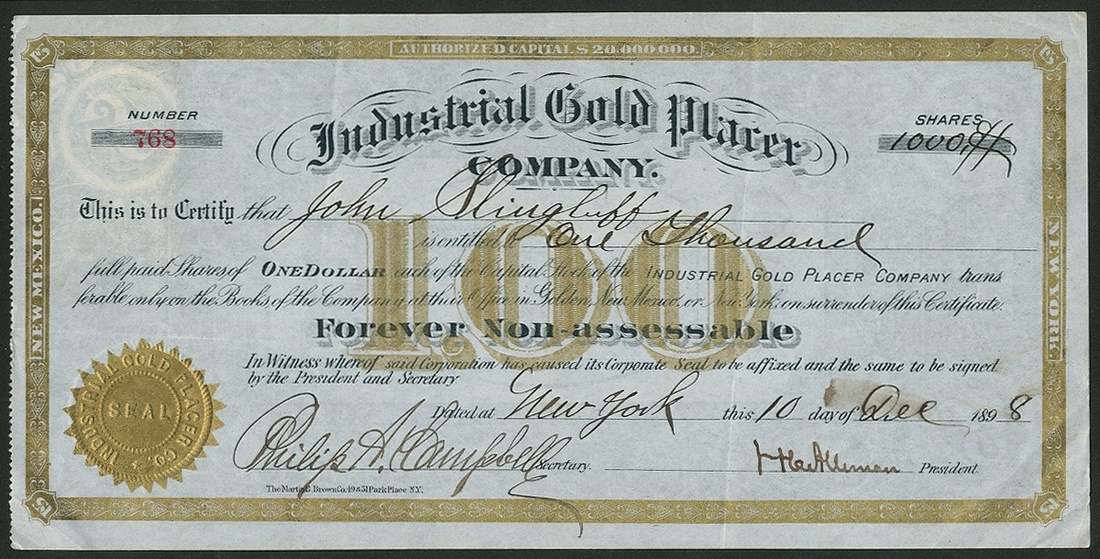 AUTHORIZED CAPITAL $20,000,000.
NUMBER
768
Industrial Gold Placer
COMPANY.
SHARES
1000
This is to Certify that John Slingluff
is entitled to One Thousand
full paid Shares of ONE DOLLAR each of the Capital Stock of the INDUSTRIAL GOLD PLACER COMPANY trans
ferable only on the Books of the Company at their Office in Golden, New Mexico, or New York, on surrender of this Certificate.
1.00
Forever Non-assessable
In Witness whereof said Corporation has caused its Corporate Seal to be affixed and the same to be signed
by the President and Secretary
Dated at New York this 10 day of Dec 1898
Philip A. Campbell Secretary.
President
The Martin B. Brown Co. 49 & 51 Park Place N.Y.
INDUSTRIAL GOLD PLACER CO.
SEAL
NEW MEXICO.
NEW YORK.